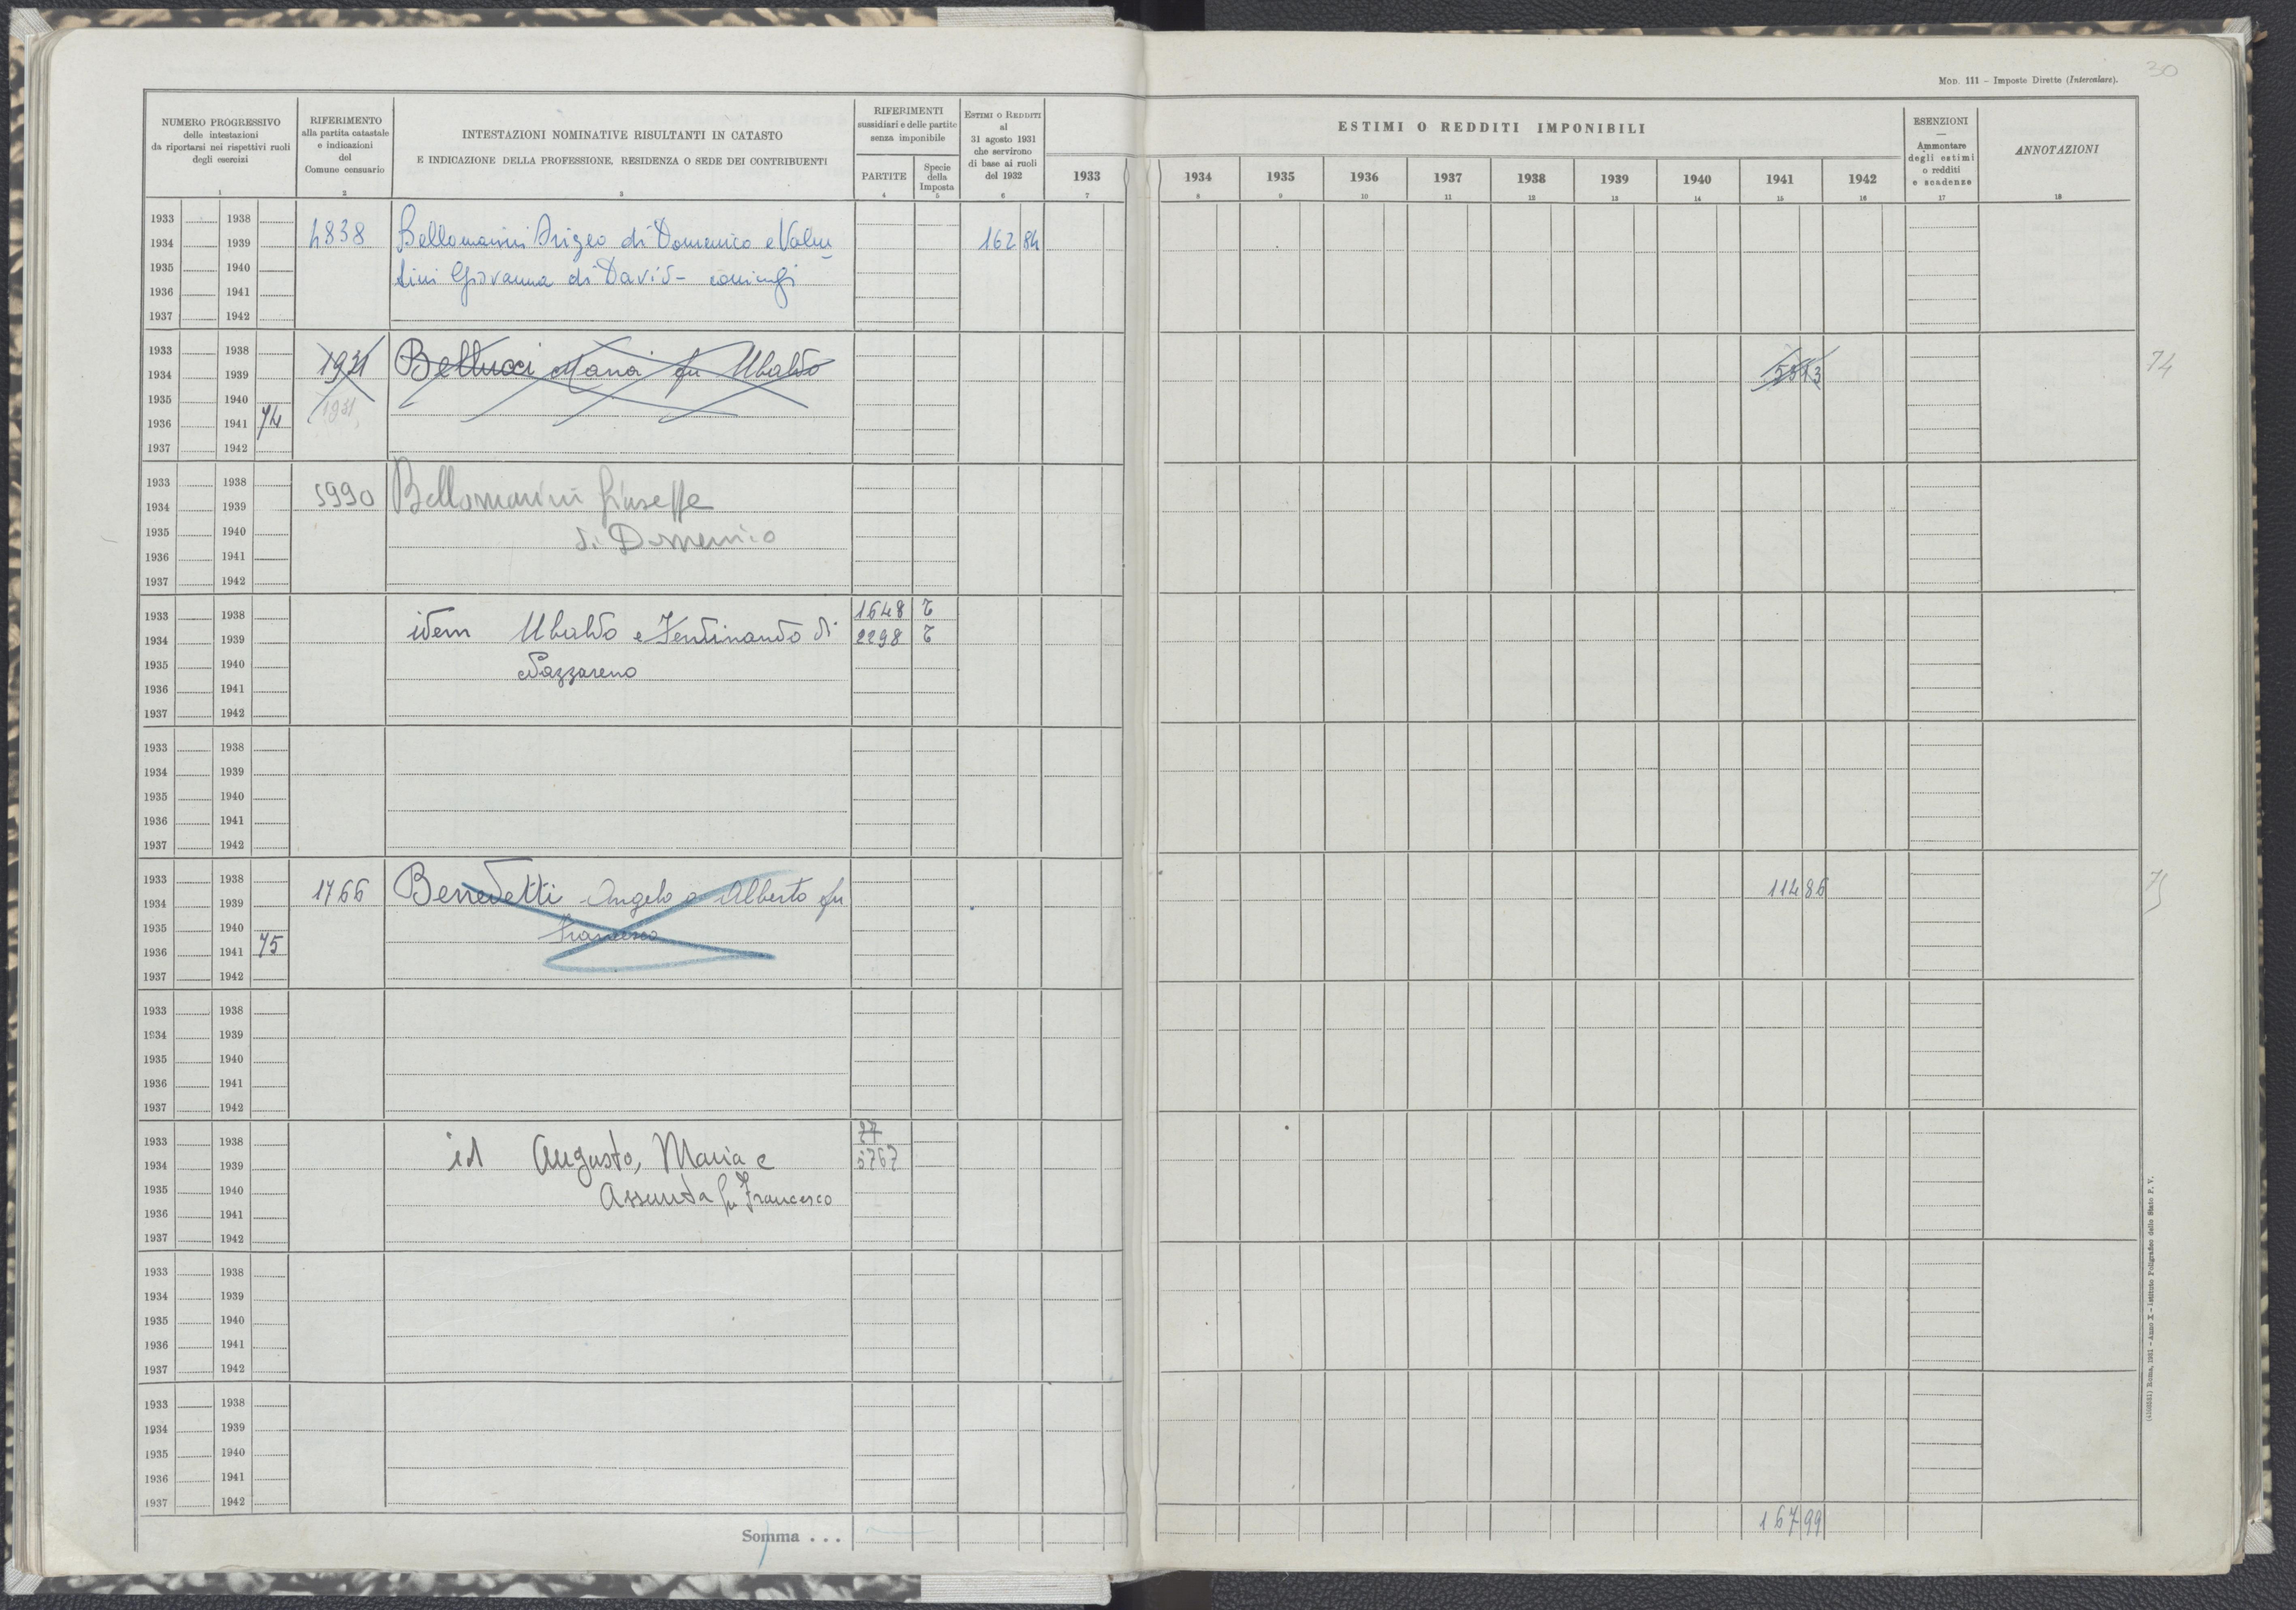 30
MOD. 111 – Imposte Dirette (Intercalare).
NUMERO PROGRESSIVO
delle intestazioni
da riportarsi nei rispettivi ruoli
degli esercizi
1
RIFERIMENTO
alla partita catastale
e indicazioni
del
Comune censuario
2
INTESTAZIONI NOMINATIVE RISULTANTI IN CATASTO
E INDICAZIONE DELLA PROFESSIONE, RESIDENZA O SEDE DEI CONTRIBUENTI
3
RIFERIMENTI
sussidiari e delle partite
senza imponibile
PARTITE
4
Specie
della
Imposta
5
ESTIMI O REDDITI
al
31 agosto 1931
che servirono
di base ai ruoli
del 1932
6
ESTIMI O REDDITI IMPONIBILI
1933
7
1934
8
1935
9
1936
10
1937
11
1938
12
1939
13
1940
14
1941
15
1942
16
ESENZIONI
—
Ammontare
degli estimi
o redditi
e scadenze
17
ANNOTAZIONI
18
1933 1938
1934 1939 4838 Bellomarini Arigeo di Domenico e Valen- 162 84
1935 1940 tini Giovanna di David - coniugi
1936 1941
1937 1942
1933 1938
1934 1939 1931 Bellucci Maria fu Ubaldo 53 13 74
1935 1940 1931
1936 1941 74
1937 1942
1933 1938
1934 1939 5990 Bellomarini Giuseppe
1935 1940 di Domenico
1936 1941
1937 1942
1933 1938 1648 T
1934 1939 idem Ubaldo e Ferdinando di 2298 T
1935 1940 Nazzareno
1936 1941
1937 1942
1933 1938
1934 1939
1935 1940
1936 1941
1937 1942
1933 1938
1934 1939 1766 Benedetti Angelo e Alberto fu 114 86 75
1935 1940 Francesco
1936 1941 75
1937 1942
1933 1938
1934 1939
1935 1940
1936 1941
1937 1942
1933 1938 27
1934 1939 id Augusto, Maria e 5767
1935 1940 Assunta fu Francesco
1936 1941
1937 1942
1933 1938
1934 1939
1935 1940
1936 1941
1937 1942
1933 1938
1934 1939
1935 1940
1936 1941
1937 1942
Somma . . . 167 99
Roma, 1931 – Anno X – Istituto Poligrafico dello Stato P. V.